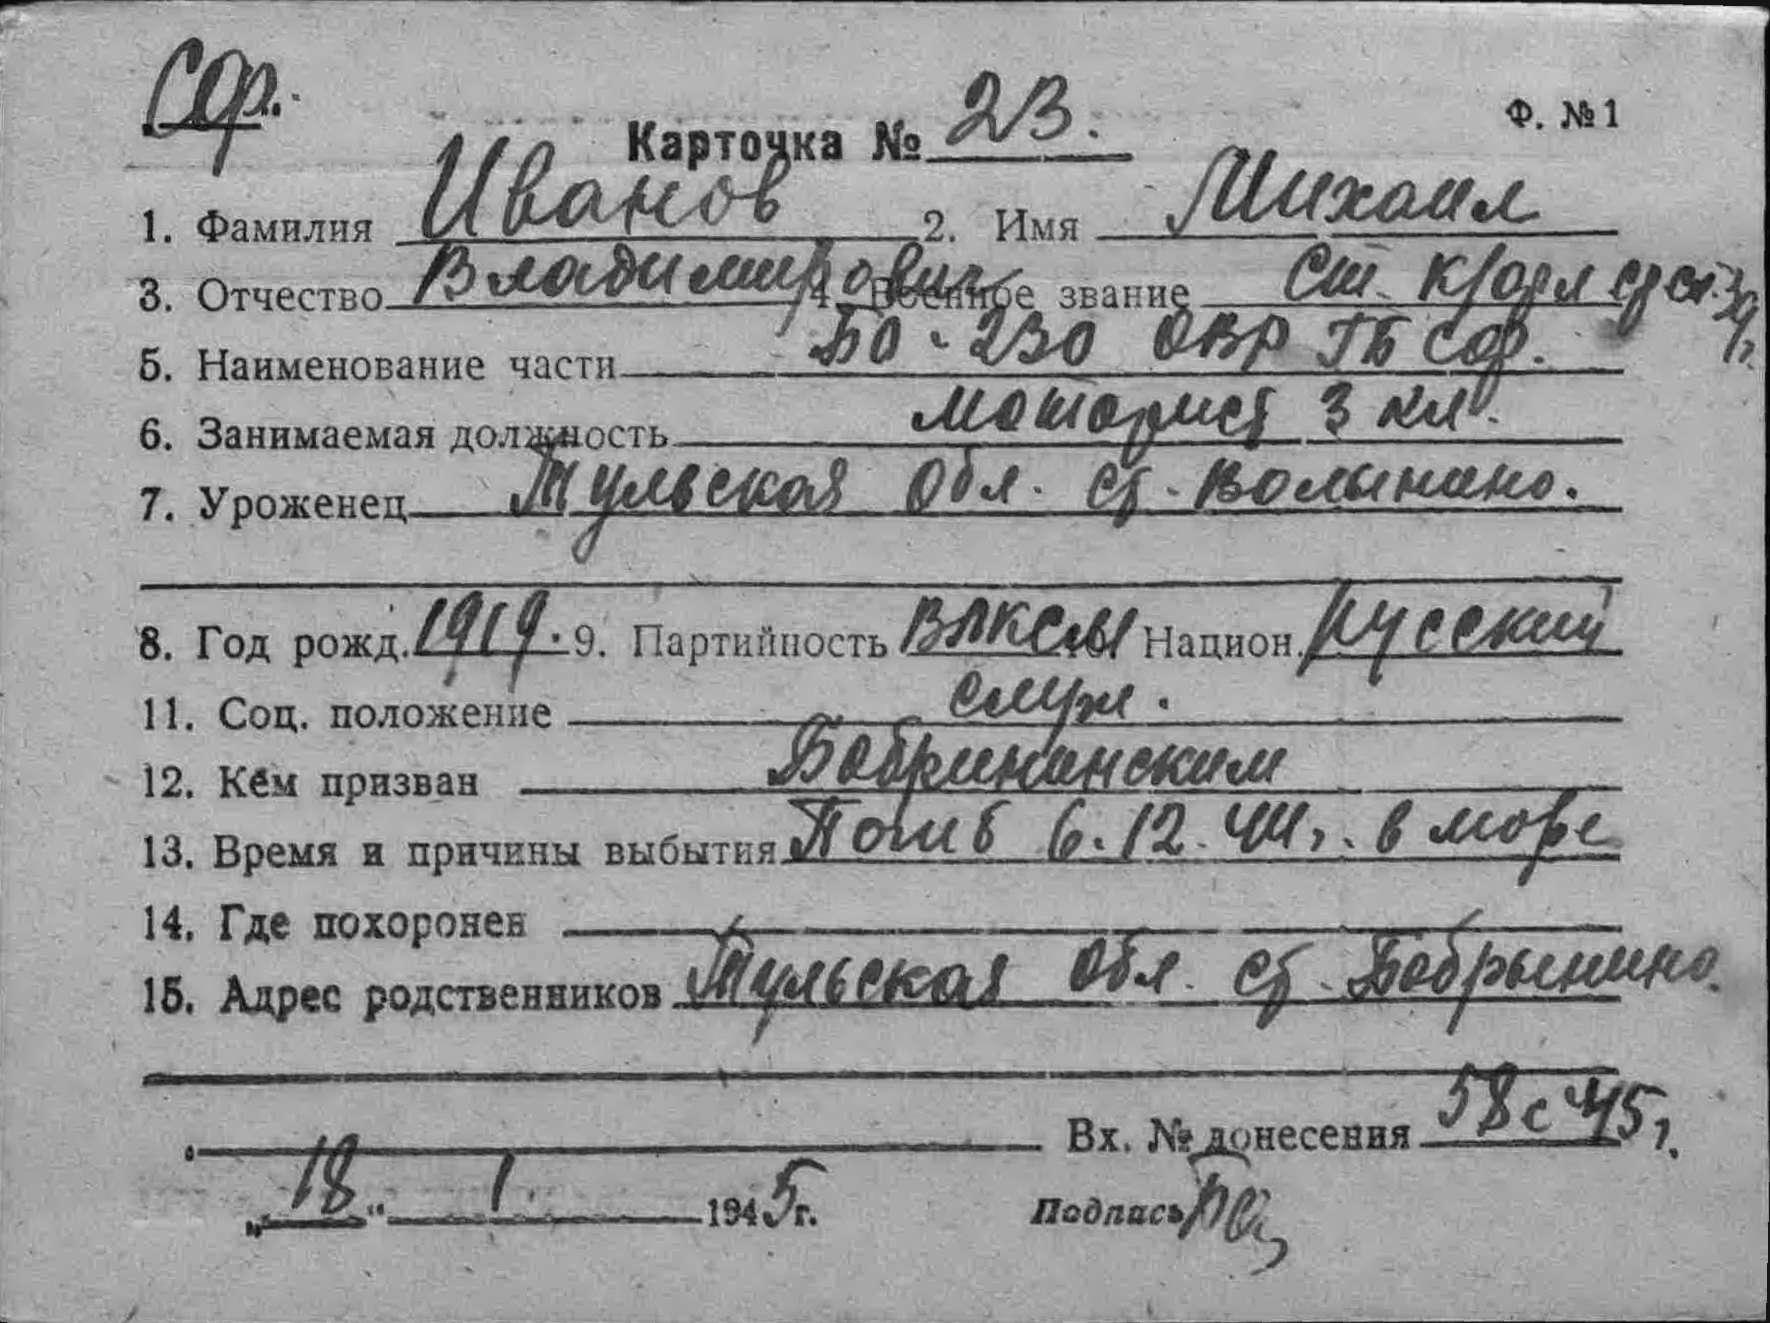 СОР.
Карточка № 23. Ф. № 1
1. Фамилия Иванов 2. Имя Михаил
3. Отчество Владимирович 4. Военное звание Ст. кр-фл ср сл. 39 г.
5. Наименование части БО-230 ОВР ГБ СОР.
6. Занимаемая должность моторист 3 кл.
7. Уроженец Тульская обл. ст. Волынино.
8. Год рожд. 1919. 9. Партийность ВЛКСМ Национ. Русский
11. Соц. положение служ.
12. Кем призван Бобрининским
13. Время и причины выбытия Погиб 6.12.44 г. в море
14. Где похоронен
15. Адрес родственников Тульская обл. ст. Бобрынино.
Вх. № донесения 58с 45 г.
„18“ 1. 1945 г. Подпись